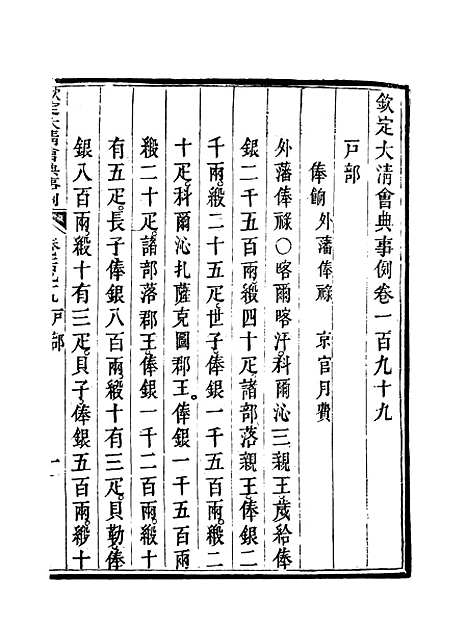 欽定大清會典事例卷一百九十九
戸部
俸餉 外藩俸祿 京官月費
外藩俸祿○喀爾喀汗科爾沁三親王歲給俸
銀二千五百兩緞四十疋諸部落親王俸銀二
千兩緞二十五疋世子俸銀一千五百兩緞二
十疋科爾沁扎薩克圖郡王俸銀一千五百兩
緞二十疋諸部落郡王俸銀一千二百兩緞十
有五疋長子俸銀八百兩緞十有三疋貝勒俸
銀八百兩緞十有三疋貝子俸銀五百兩緞十
欽定大清會典事例 戸部 一